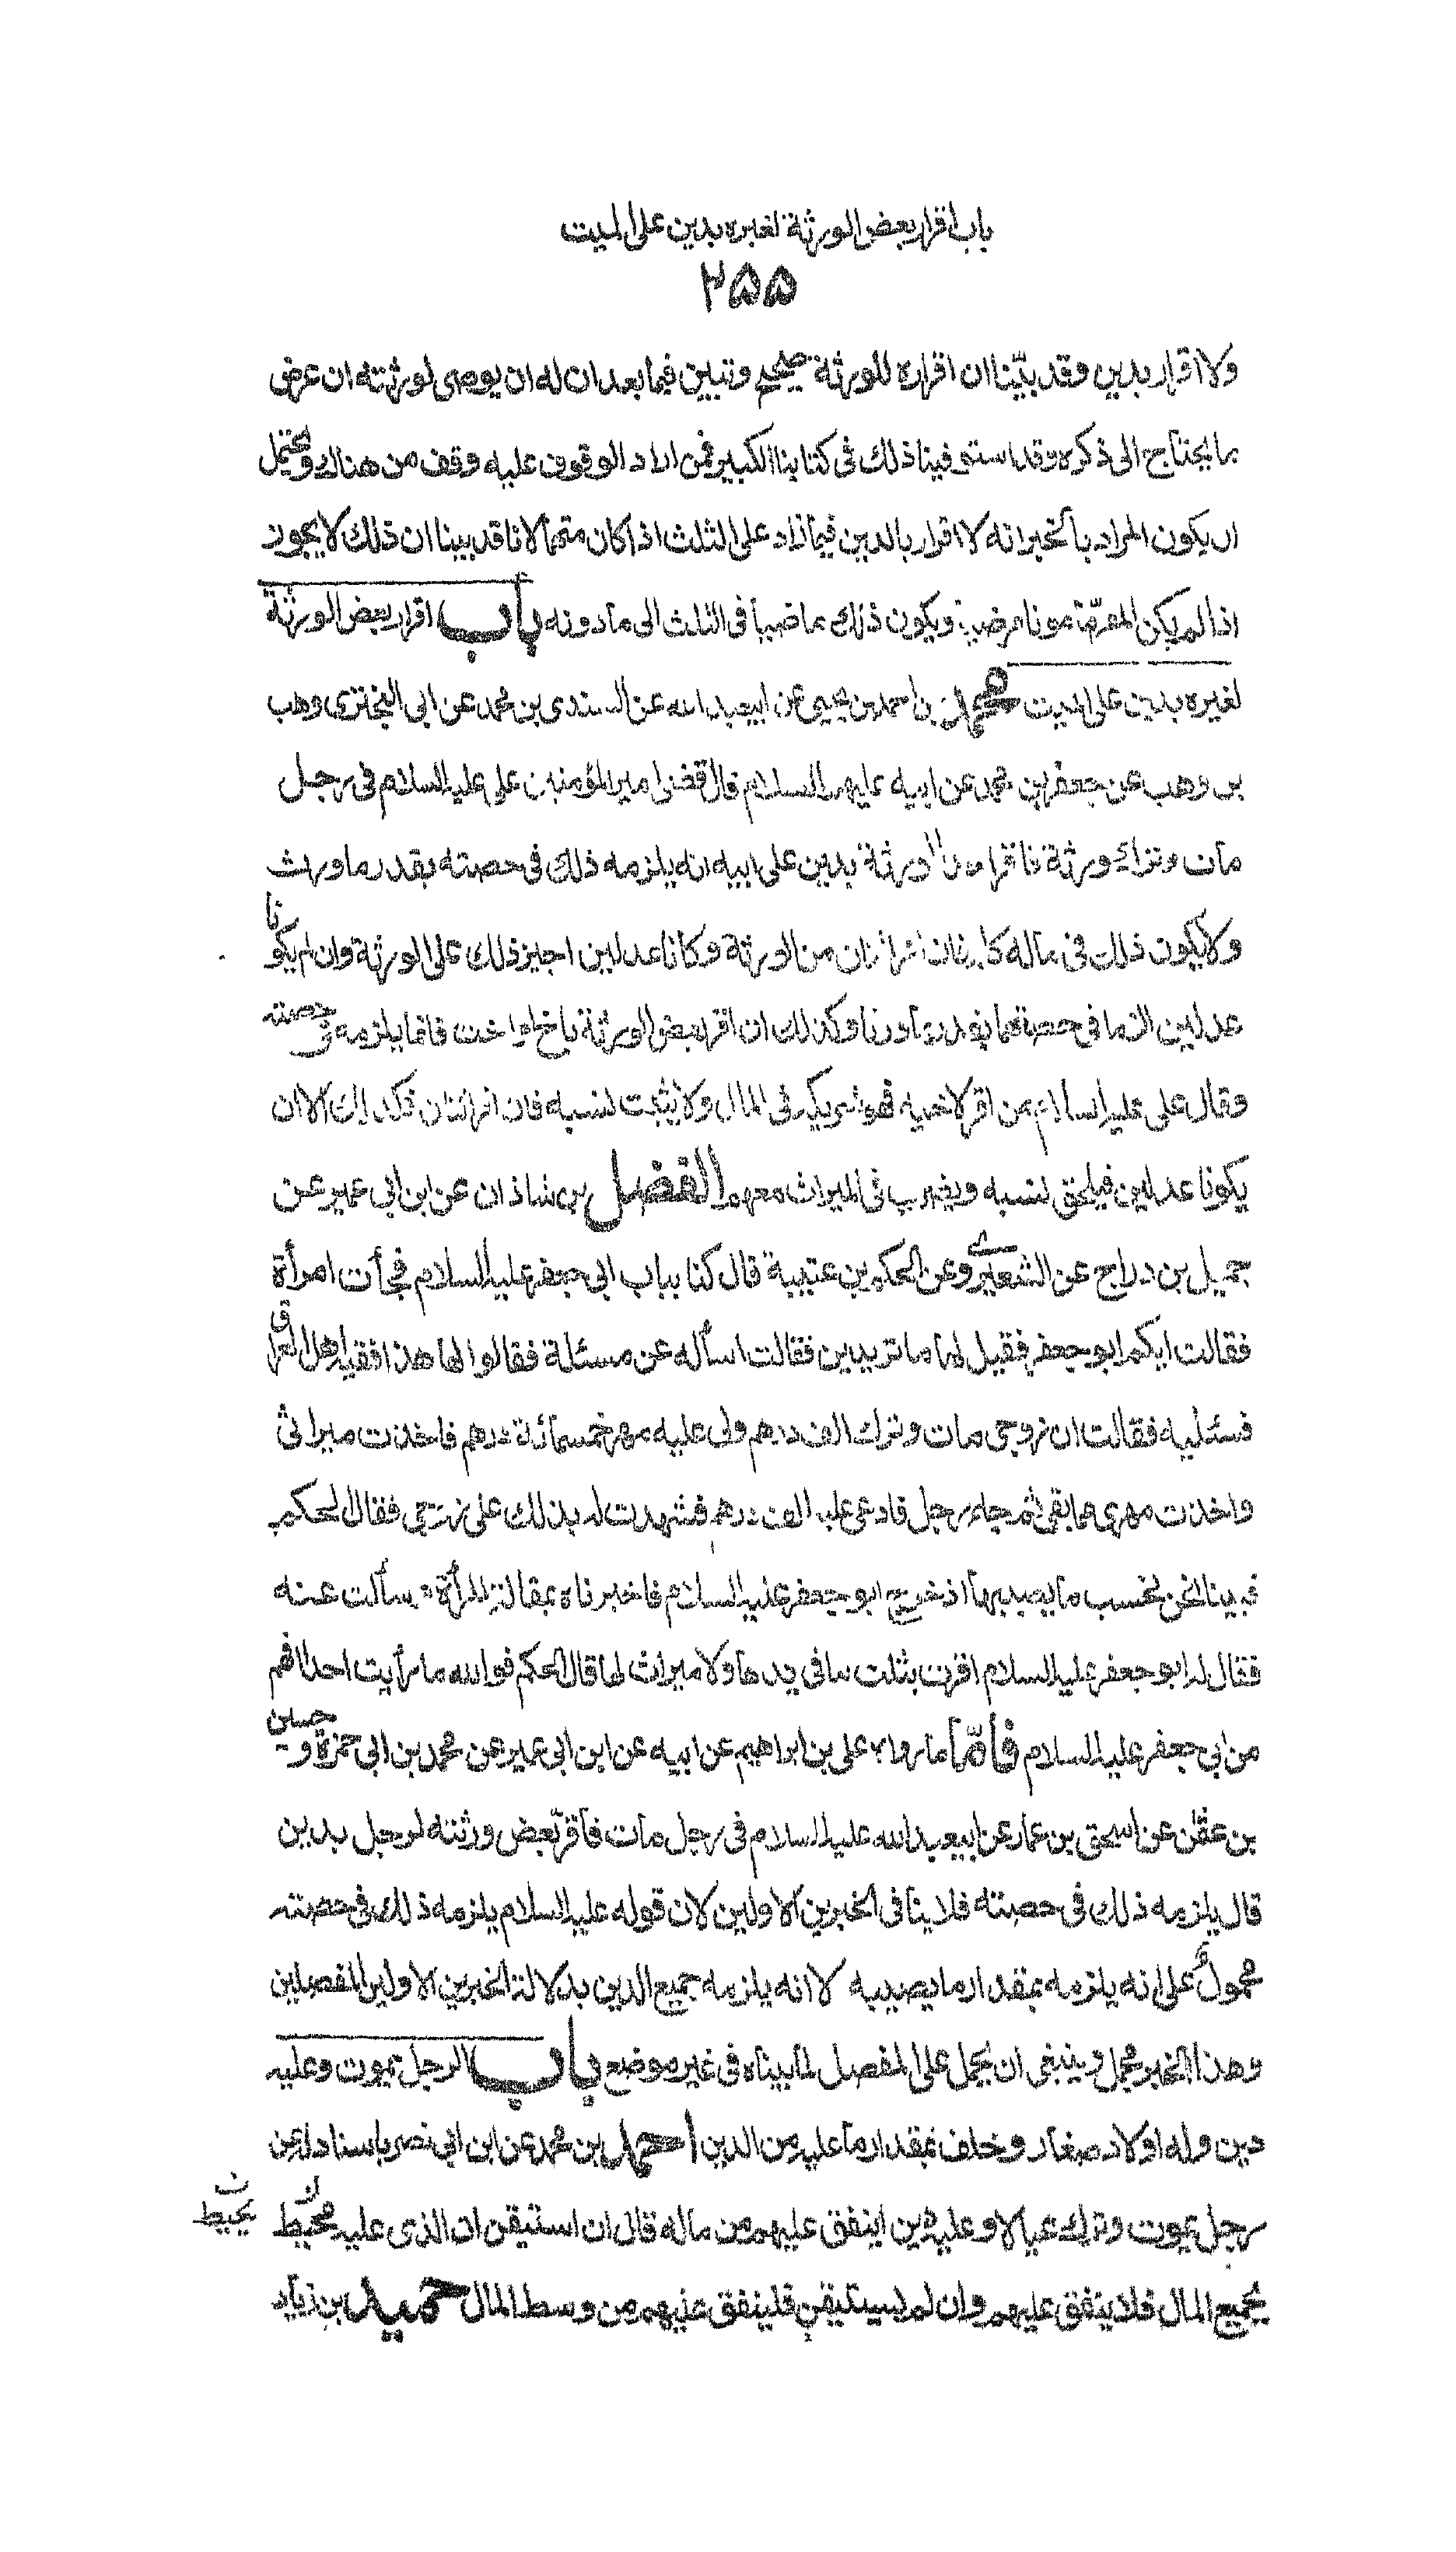 باب اقرار بعض الورثة لغيره بدين على الميت
٢۵۵
ولا اقرار بدين وقد بيّنا ان اقراره للورثة صحيح وتبين فيما بعد ان له ان يوصى لورثته ان عرض
بما يحتاج الى ذكره وقد استوفينا ذلك فى كتابنا الكبير فمن اراد الوقوف عليه وقف من هناك ويحتمل
ان يكون المراد بالخبر انه لا اقرار بالدين فيما زاد على الثلث اذا كان متهما لانا قد بينا ان ذلك لا يجوز
اذا لم يكن المقر مأمونا مرضيا ويكون ذلك ماضيا فى الثلث الى ما دونه باب اقرار بعض الورثة
لغيره بدين على الميت محمد بن احمد بن يحيى عن ابيعبد الله عن السندى بن محمد عن ابى البخترى وهب
بن وهب عن جعفر بن محمد عن ابيه عليهما السلام قال قضى امير المؤمنين على عليه السلام فى رجل
مات وترك ورثة فاقر احد الورثة بدين على ابيه انه يلزمه ذلك فى حصته بقدر ما ورث
ولا يكون ذلك فى ماله كله فان اقر اثنان من الورثة وكانا عدلين اجيز ذلك على الورثة وان لم يكونا
عدلين الزما فى حصتهما بقدر ما ورثا وكذلك ان اقر بعض الورثة باخ او اخت فانما يلزمه فى حصته
وقال على عليه السلام من اقر لاخيه فهو شريك فى المال ولا يثبت نسبه فان اقر اثنان فكذلك الا ان
يكونا عدلين فيلحق نسبه ويضرب فى الميراث معهم الفضل بن شاذان عن ابن ابى عمير عن
جميل بن دراج عن الشعيرى وعن الحكم بن عتيبة قال كنا بباب ابى جعفر عليه السلام فجأت امرأة
فقالت ايكم ابو جعفر فقيل لها ما تريدين فقالت اسأله عن مسئلة فقالوا لها هذا فقيه اهل العراق
فسئليه فقالت ان زوجى مات وترك الف درهم ولى عليه مهر خمسمائة درهم فاخذت ميراثى
واخذت مهرى مما بقى ثم جاء رجل فادعى عليه الف درهم فشهدت له بذلك على زوجى فقال الحكم
فبينا نحن نحسب ما يصيبها اذ خرج ابو جعفر عليه السلام فاخبرناه بمقالة المرأة وما سألت عنه
فقال له ابو جعفر عليه السلام اقرت بثلث ما فى يدها ولا ميراث لها قال الحكم فو الله ما رأيت احدا افهم
من ابى جعفر عليه السلام فأمّا ما رواه على بن ابراهيم عن ابيه عن ابن ابى عمير عن محمد بن ابى حمزة وحسين
بن عثمن عن اسحق بن عمار عن ابيعبد الله عليه السلام فى رجل مات فاقرّ بعض ورثته لرجل بدين
قال يلزمه ذلك فى حصته فلا ينافى الخبرين الاولين لان قوله عليه السلام يلزمه ذلك فى حصته
محمول على انه يلزمه بمقدار ما يصيبه لا انه يلزمه جميع الدين بدلالة الخبرين الاولين المفصلين
وهذا الخبر مجمل وينبغى ان يحمل على المفصل لما بيناه فى غير موضع باب الرجل يموت وعليه
دين وله اولاد صغار وخلف بمقدار ما عليه من الدين احمد بن محمد عن ابن ابى نصر باسناده عن
رجل يموت وترك عيالا وعليه دين اينفق عليهم من ماله قال ان استيقن ان الذى عليه محيط
يحيط
بجميع المال فلا ينفق عليهم وان لم يستيقن فلينفق عليهم من وسط المال حميد بن زياد